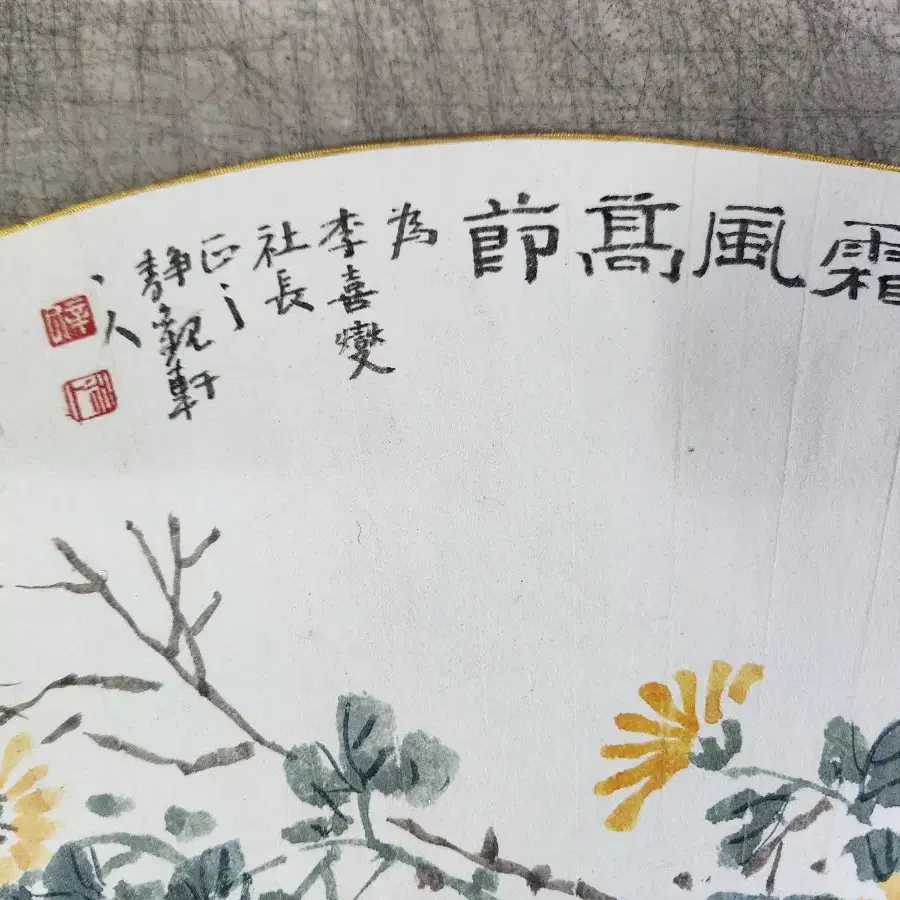 霜風高節
為
李喜燮
社長
正之
靜觀軒
主人